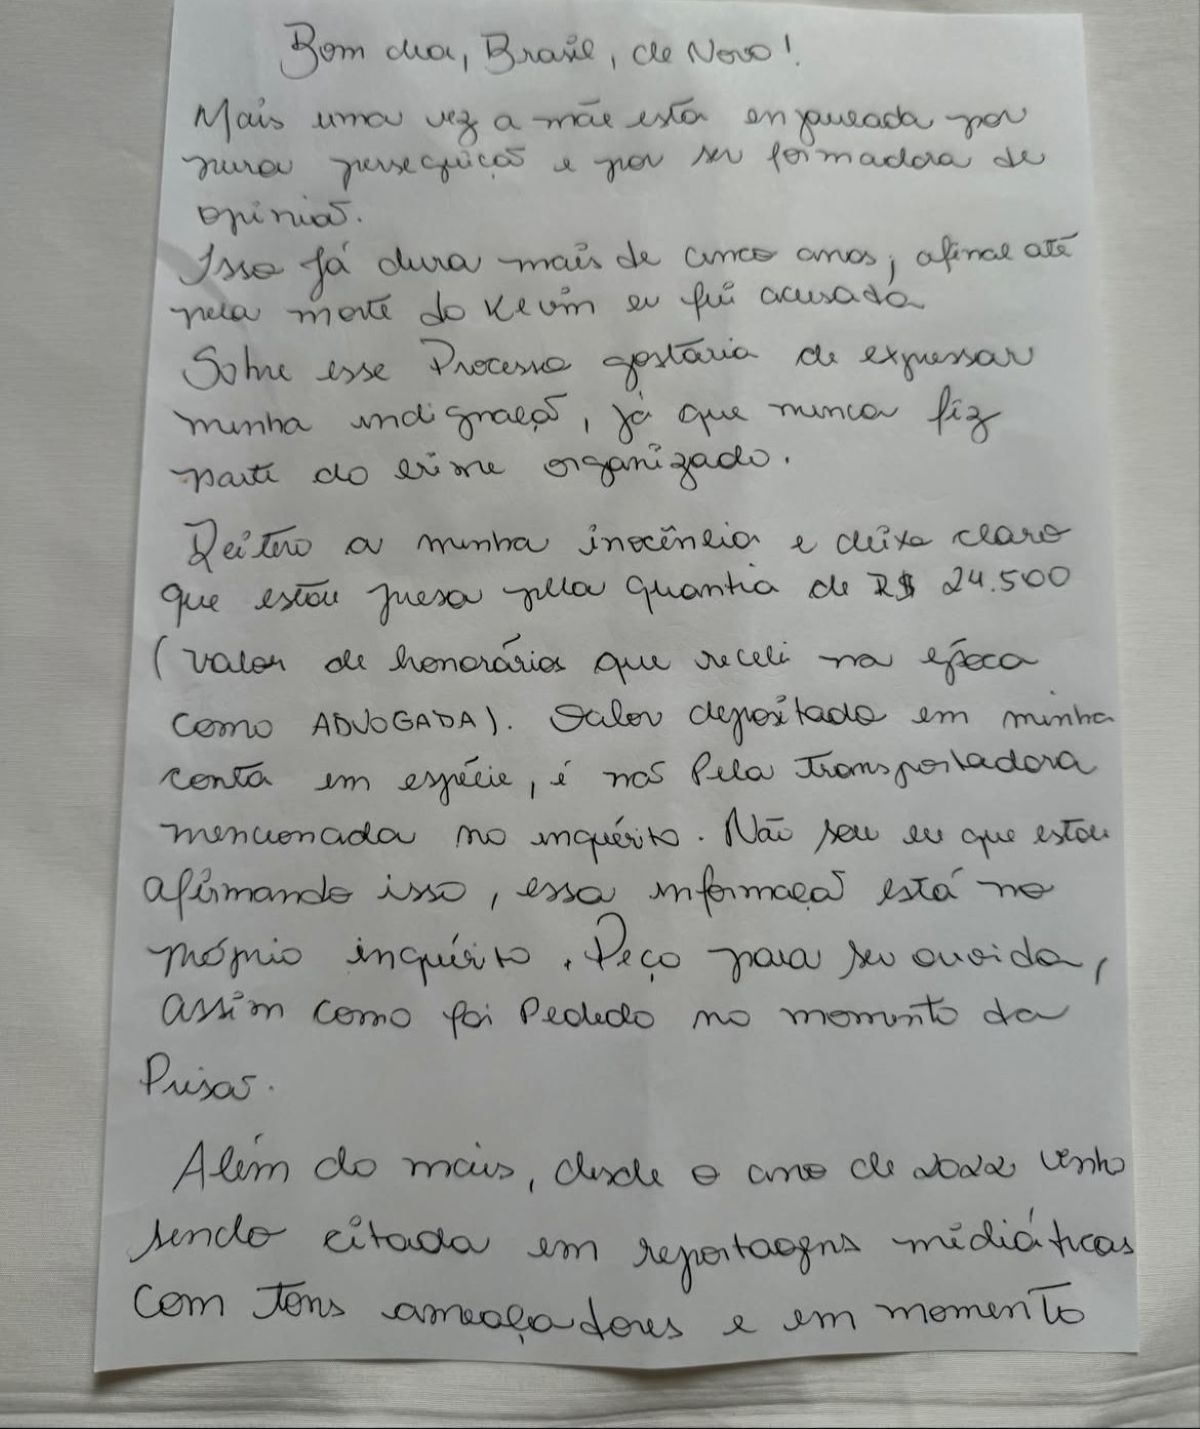 Bom dia, Brasil, de Novo!
Mais uma vez a mãe está enjaulada por
pura perseguição e por ser formadora de
opinião.
Isso já dura mais de cinco anos, afinal até
pela morte do Kevin eu fui acusada
Sobre esse Processo gostaria de expressar
minha indignação, já que nunca fiz
parte do crime organizado.
Reitero a minha inocência e deixo claro
que estou presa pela quantia de R$ 24.500
(valor de honorários que recebi na época
como ADVOGADA). Valor depositado em minha
conta em espécie, é não Pela Transportadora
mencionada no inquérito. Não sou eu que estou
afirmando isso, essa informação está no
próprio inquérito. Peço para ser ouvida,
assim como foi Pedido no momento da
Prisão.
Além do mais, desde o ano de 2022 venho
sendo citada em reportagens midiáticas
com tons ameaçadores e em momento